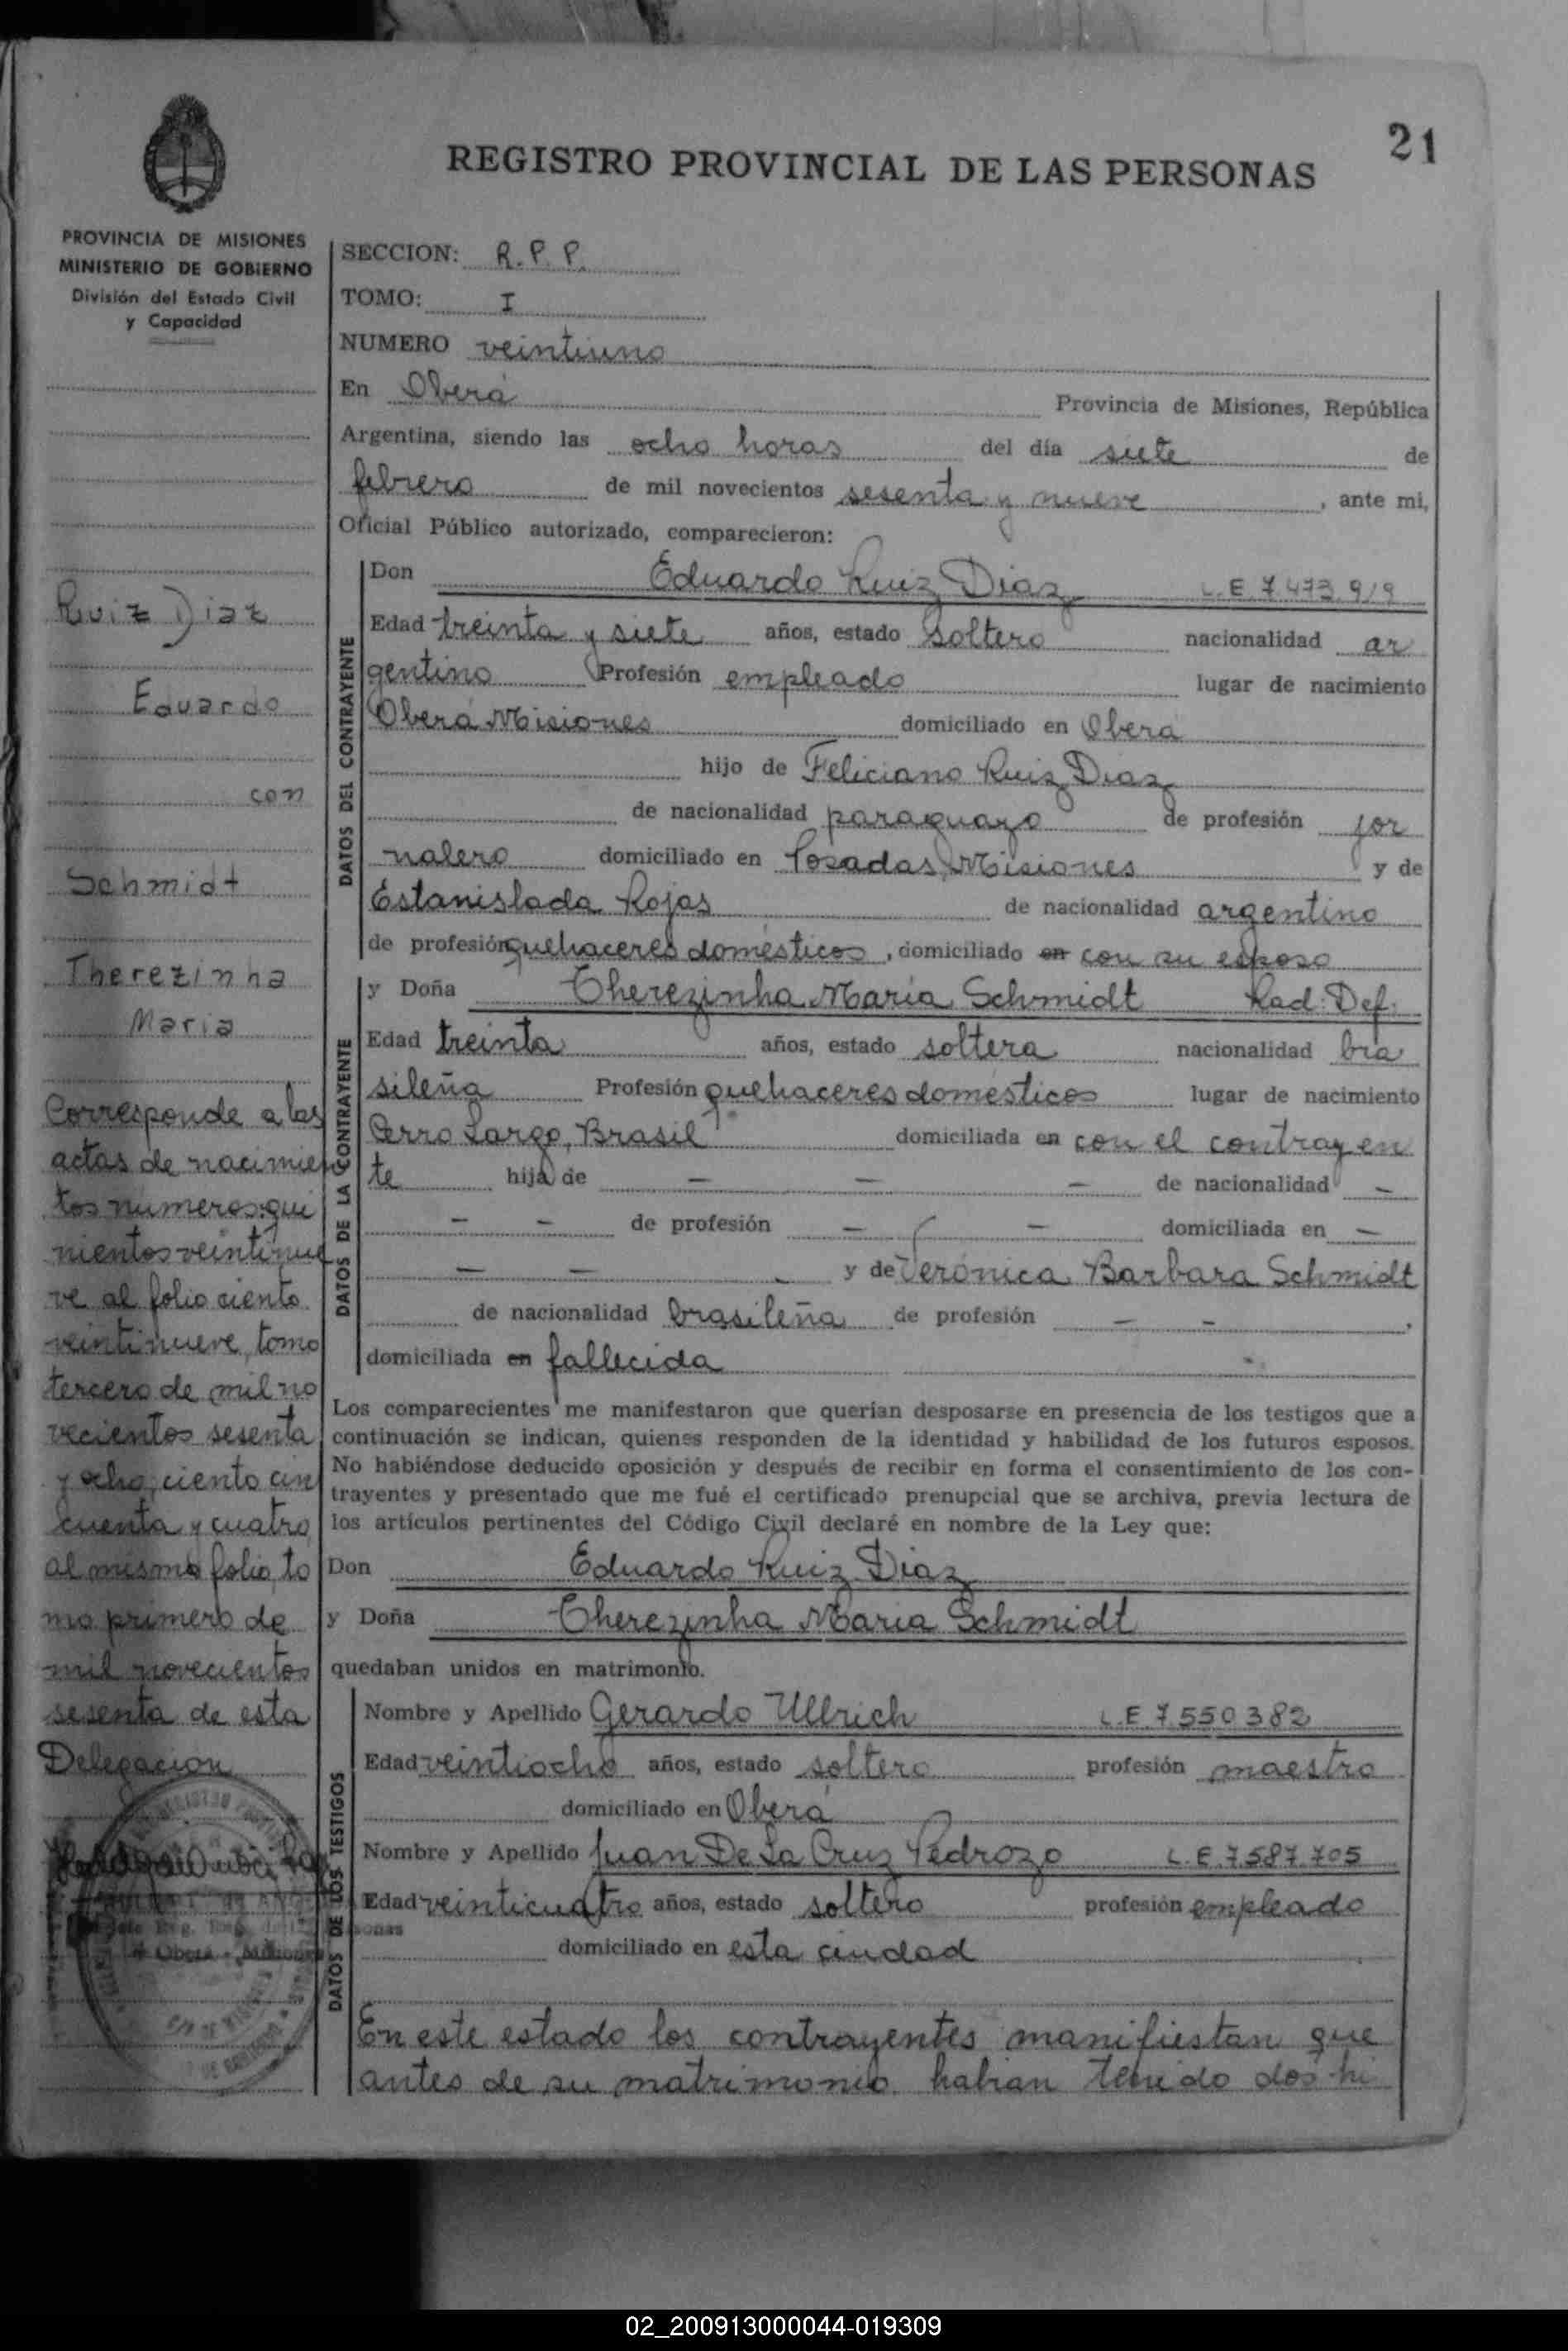 21
REGISTRO PROVINCIAL DE LAS PERSONAS
PROVINCIA DE MISIONES
MINISTERIO DE GOBIERNO
División del Estado Civil
y Capacidad
Ruiz Diaz
Eduardo
con
Schmidt
Therezinha
Maria
Corresponde a las
actas de nacimien
tos numeros: qui
nientos veintinue
ve al folio ciento
veintinueve, tomo
tercero de mil no
vecientos sesenta
y ocho; ciento cin
cuenta y cuatro,
al mismo folio, to
mo primero de
mil novecientos
sesenta de esta
Delegacion
SECCION: R. P. P.
TOMO: I
NUMERO veintiuno
En Oberá Provincia de Misiones, República
Argentina, siendo las ocho horas del día siete de
febrero de mil novecientos sesenta y nueve, ante mi,
Oficial Público autorizado, comparecieron:
DATOS DEL CONTRAYENTE
Don Eduardo Ruiz Diaz L.E 7.473.919
Edad treinta y siete años, estado soltero nacionalidad ar
gentino Profesión empleado lugar de nacimiento
Oberá Misiones domiciliado en Oberá
hijo de Feliciano Ruiz Diaz
de nacionalidad paraguayo de profesión jor
nalero domiciliado en Posadas, Misiones y de
Estanislada Rojas de nacionalidad argentino
de profesión quehaceres domésticos, domiciliado en con su esposo
DATOS DE LA CONTRAYENTE
y Doña Therezinha Maria Schmidt Rad: Def.
Edad treinta años, estado soltera nacionalidad bra
sileña Profesión quehaceres domésticos lugar de nacimiento
Cerro Largo, Brasil domiciliada en con el contrayen
te hija de — — — de nacionalidad —
— — de profesión — — domiciliada en —
— — y de Verónica Barbara Schmidt
de nacionalidad brasileña de profesión — —,
domiciliada en fallecida
Los comparecientes me manifestaron que querían desposarse en presencia de los testigos que a
continuación se indican, quienes responden de la identidad y habilidad de los futuros esposos.
No habiéndose deducido oposición y después de recibir en forma el consentimiento de los con-
trayentes y presentado que me fué el certificado prenupcial que se archiva, previa lectura de
los artículos pertinentes del Código Civil declaré en nombre de la Ley que:
Don Eduardo Ruiz Diaz
y Doña Therezinha Maria Schmidt
quedaban unidos en matrimonio.
DATOS DE LOS TESTIGOS
Nombre y Apellido Gerardo Ullrich L.E. 7.550.382
Edad veintiocho años, estado soltero profesión maestro
domiciliado en Oberá
Nombre y Apellido Juan De La Cruz Pedrozo L.E. 7.587.705
Edad veinticuatro años, estado soltero profesión empleado
domiciliado en esta ciudad
En este estado los contrayentes manifiestan que
antes de su matrimonio habian tenido dos hi
02_200913000044-019309